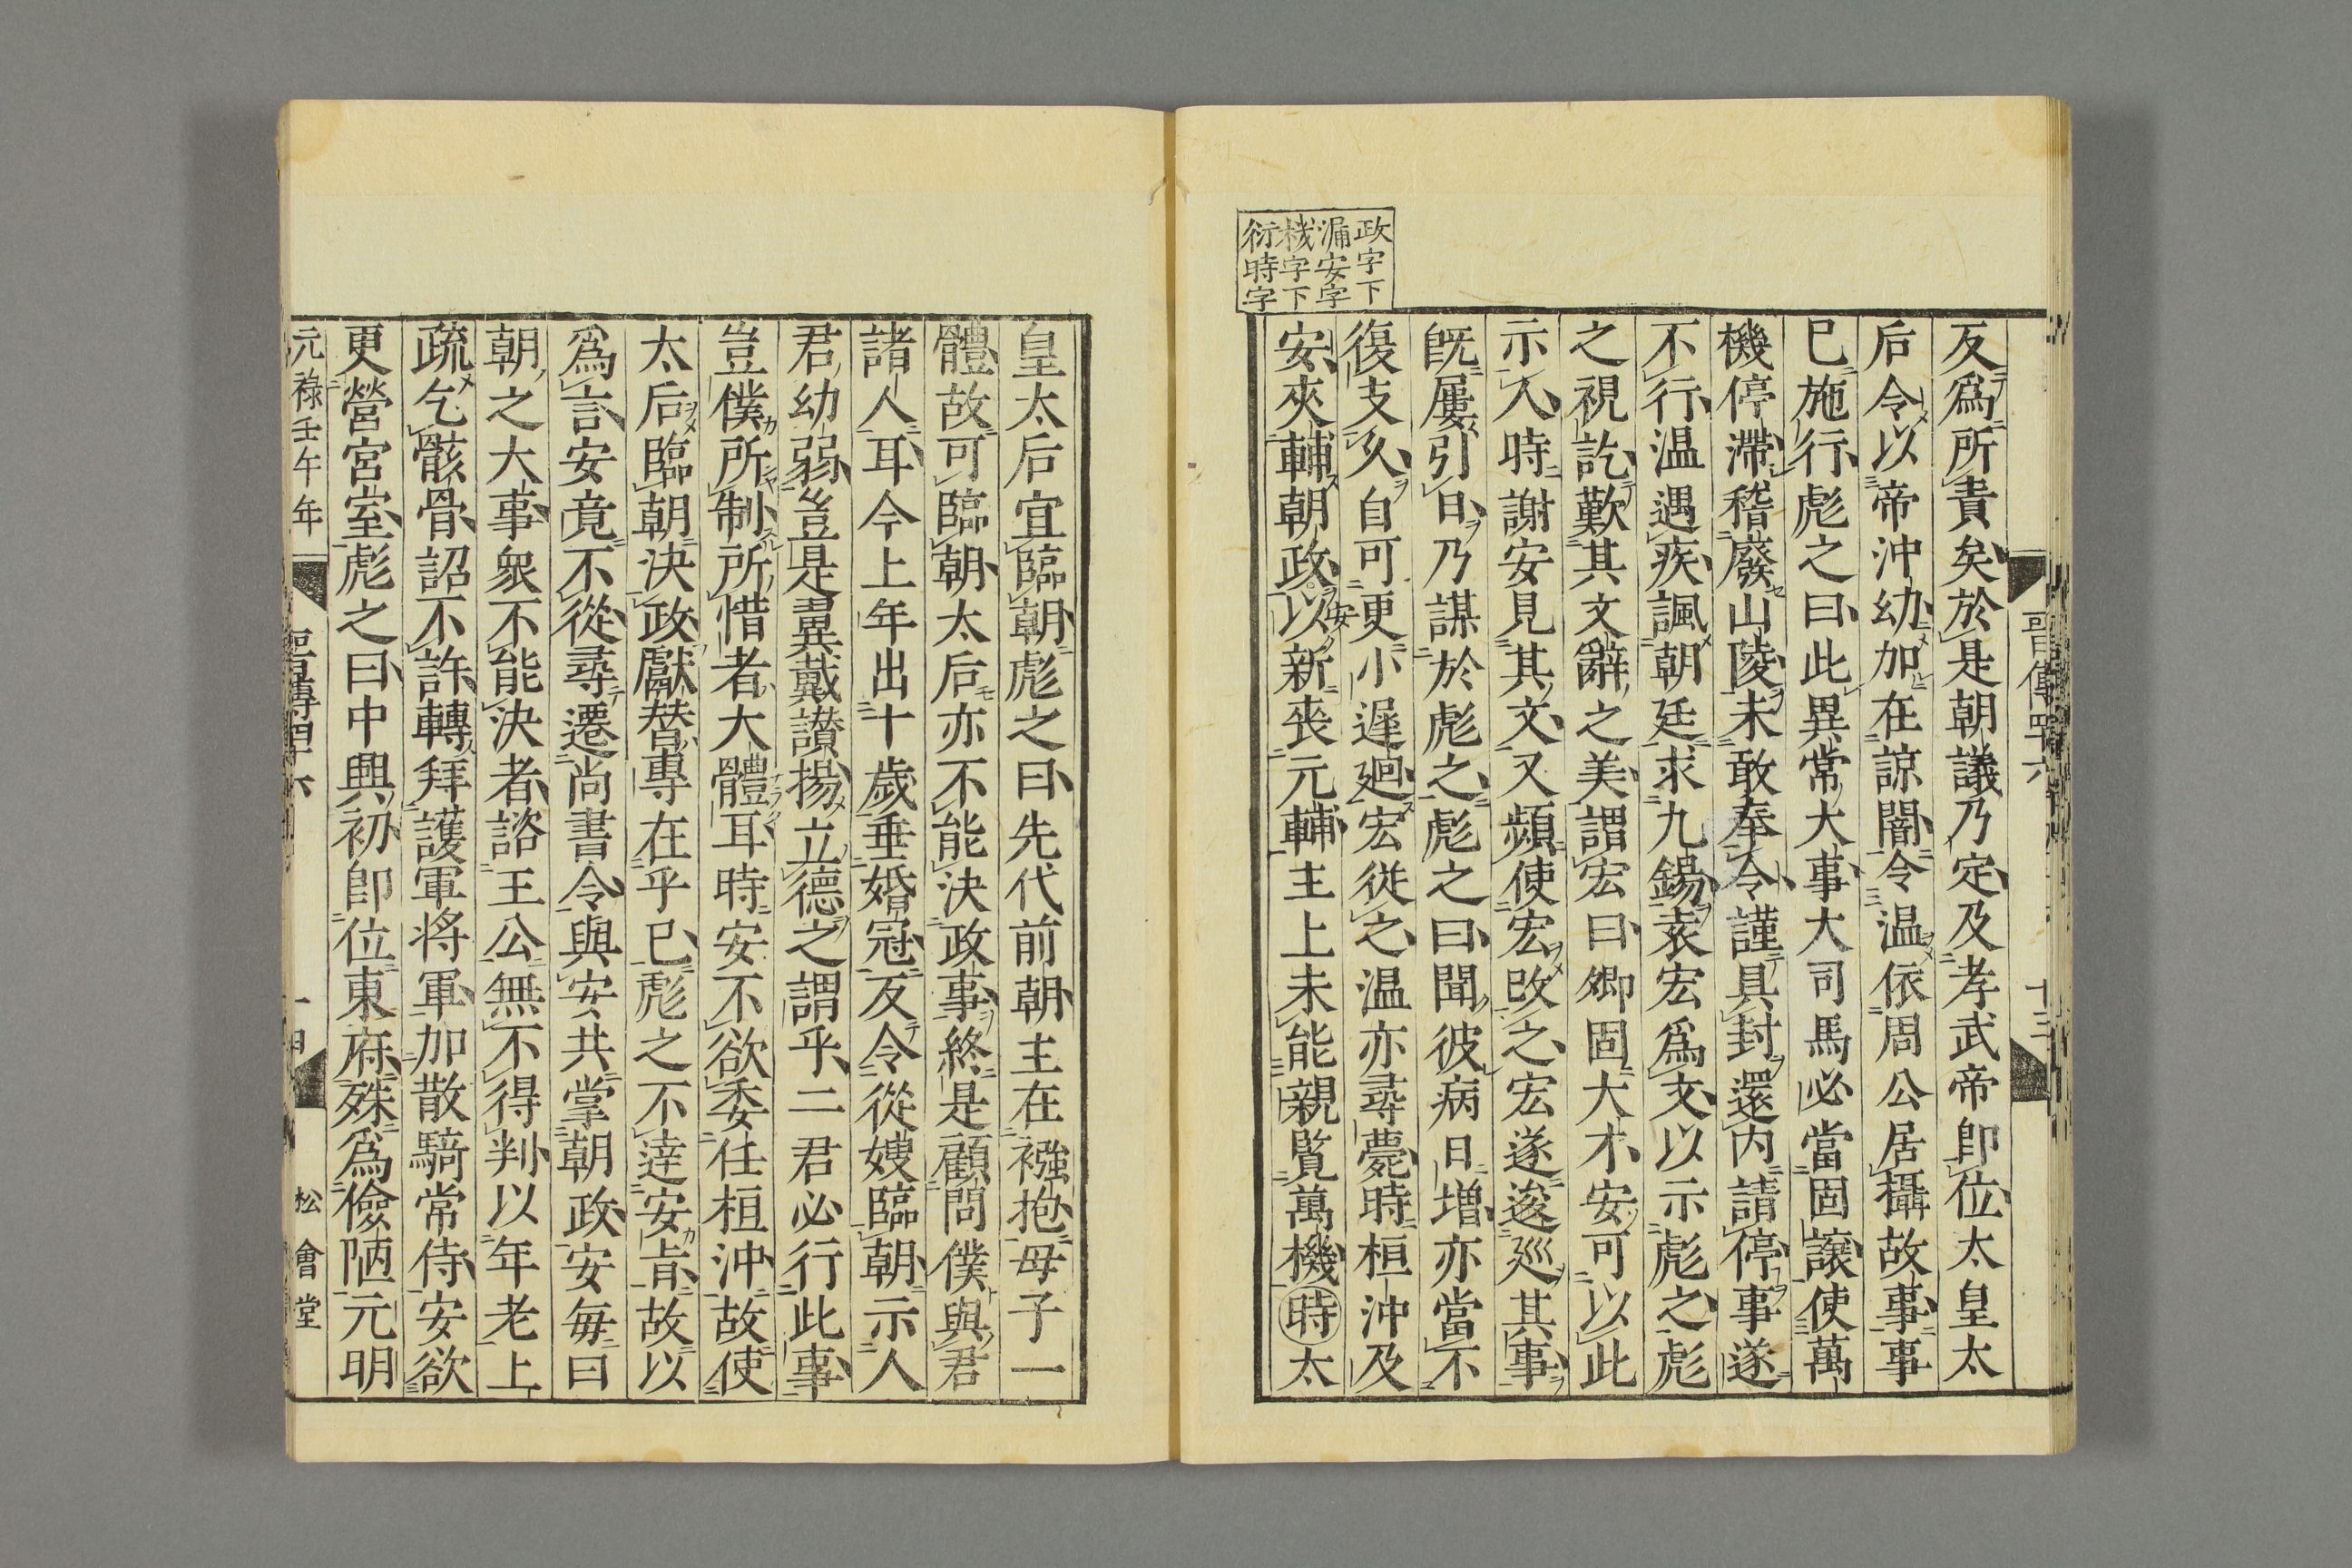 政字下
漏安字
機字下
衍時字
反爲所責矣於是朝議乃定及孝武帝卽位太皇太
后令以帝沖幼加在諒闇令温依周公居攝故事事
已施行彪之曰此異常大事大司馬必當固讓使萬
機停滯稽廢山陵未敢奉令謹具封還内請停事遂
不行温遇疾諷朝廷求九錫袁宏爲文以示彪之彪
之視訖歎其文辭之美謂宏曰卿固大才安可以此
示人時謝安見其文又頻使宏改之宏遂逡巡其事
旣屢引日乃謀於彪之彪之曰聞彼病日增亦當不
復支久自可更小遲廻宏從之温亦尋薨時桓沖及
安夾輔朝政安以新喪元輔主上未能親覧萬機時太
晉傳四十六
十三
皇太后宜臨朝彪之曰先代前朝主在襁抱母子一
體故可臨朝太后亦不能決政事終是顧問僕與君
諸人耳今上年出十歳垂婚冠反令從嫂臨朝示人
君幼弱豈是翼戴讃揚立德之謂乎二君必行此事
豈僕所制所惜者大體耳時安不欲委任桓沖故使
太后臨朝決政獻替專在乎已彪之不達安旨故以
爲言安竟不從尋遷尚書令與安共掌朝政安毎曰
朝之大事衆不能決者諮王公無不得判以年老上
疏乞骸骨詔不許轉拜護軍将軍加散騎常侍安欲
更營宮室彪之曰中興初卽位東府殊爲儉陋元明
元祿壬午年
松會堂